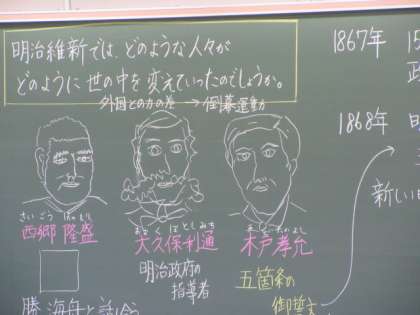 明治維新では、どのような人々が
どのように世の中を変えていったのでしょうか。
外国との力の差 → 倒幕運動
1867年
政
1868年
新しい
さいごう たかもり
西郷 隆盛
おおくぼ としみち
大久保利通
きど たかよし
木戸孝允
明治政府の
指導者
五箇条の
御誓文
勝 海舟と話し合